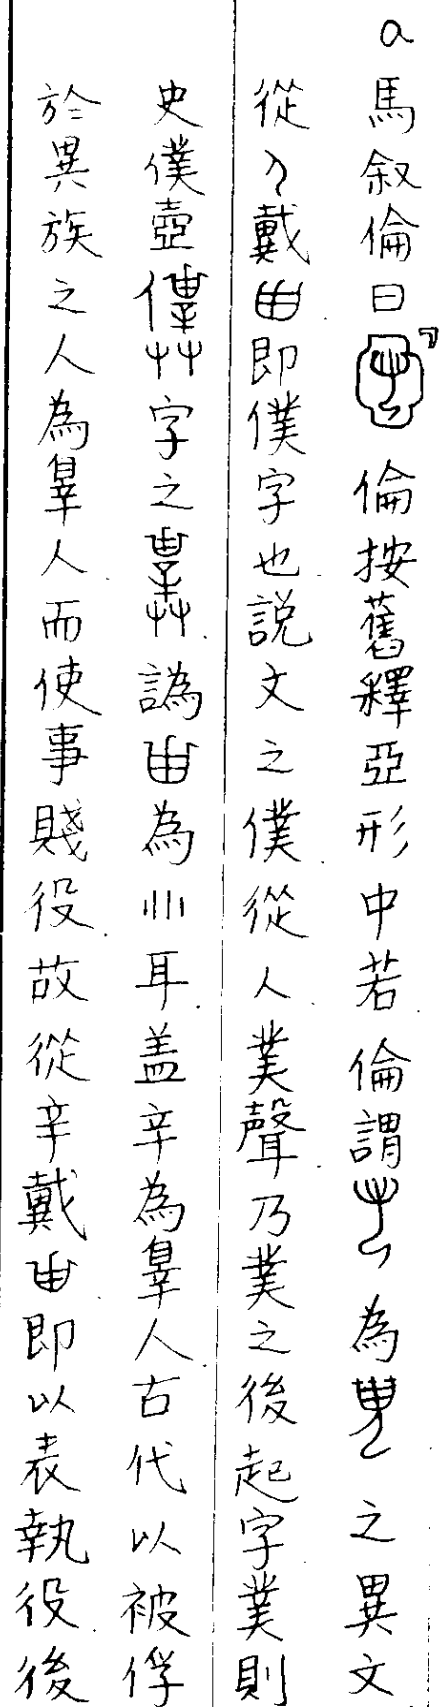 a 馬叙倫曰 倫按舊釋亞形中若倫謂 為 之異文
從 戴甾即僕字也.説文之僕從人.菐聲.乃菐之後起字菐則
史僕壺 字之 .譌甾為业耳.盖辛為辠人.古代以被俘
於異族之人為辠人而使事賤役.故從辛戴甾即以表執役.後